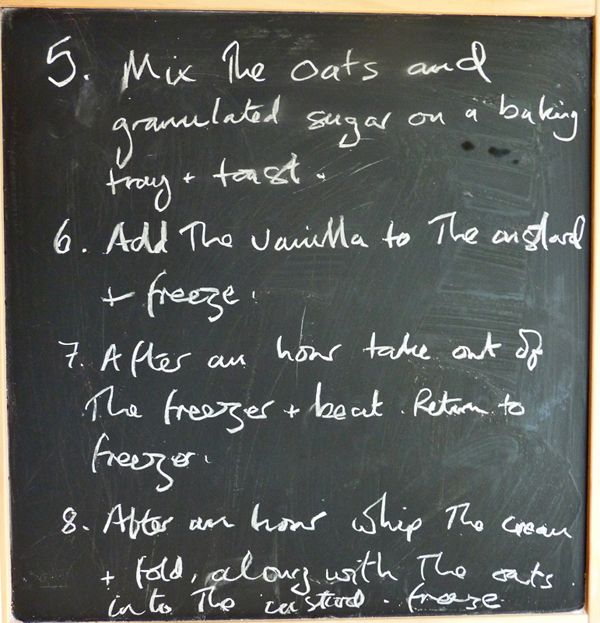 5. Mix The oats and
granulated sugar on a baking
tray + toast.
6. Add The vanilla to The custard
+ freeze.
7. After an hour take out of
The freezer + beat. Return to
freezer.
8. After an hour whip The cream
+ fold, along with The oats
into The custard. freeze